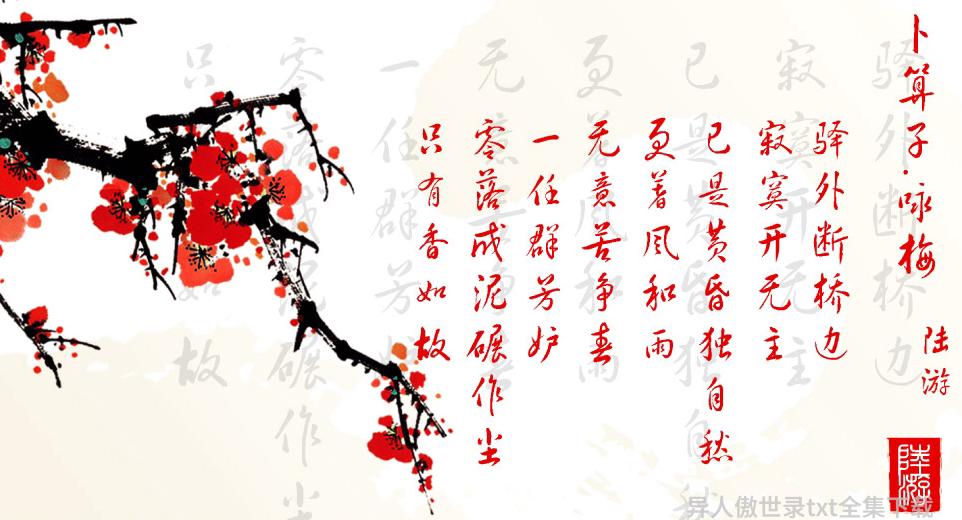 卜算子·咏梅
陆游
驿外断桥边
寂寞开无主
已是黄昏独自愁
更着风和雨
无意苦争春
一任群芳妒
零落成泥碾作尘
只有香如故
陸游
异人傲世录txt全集下载